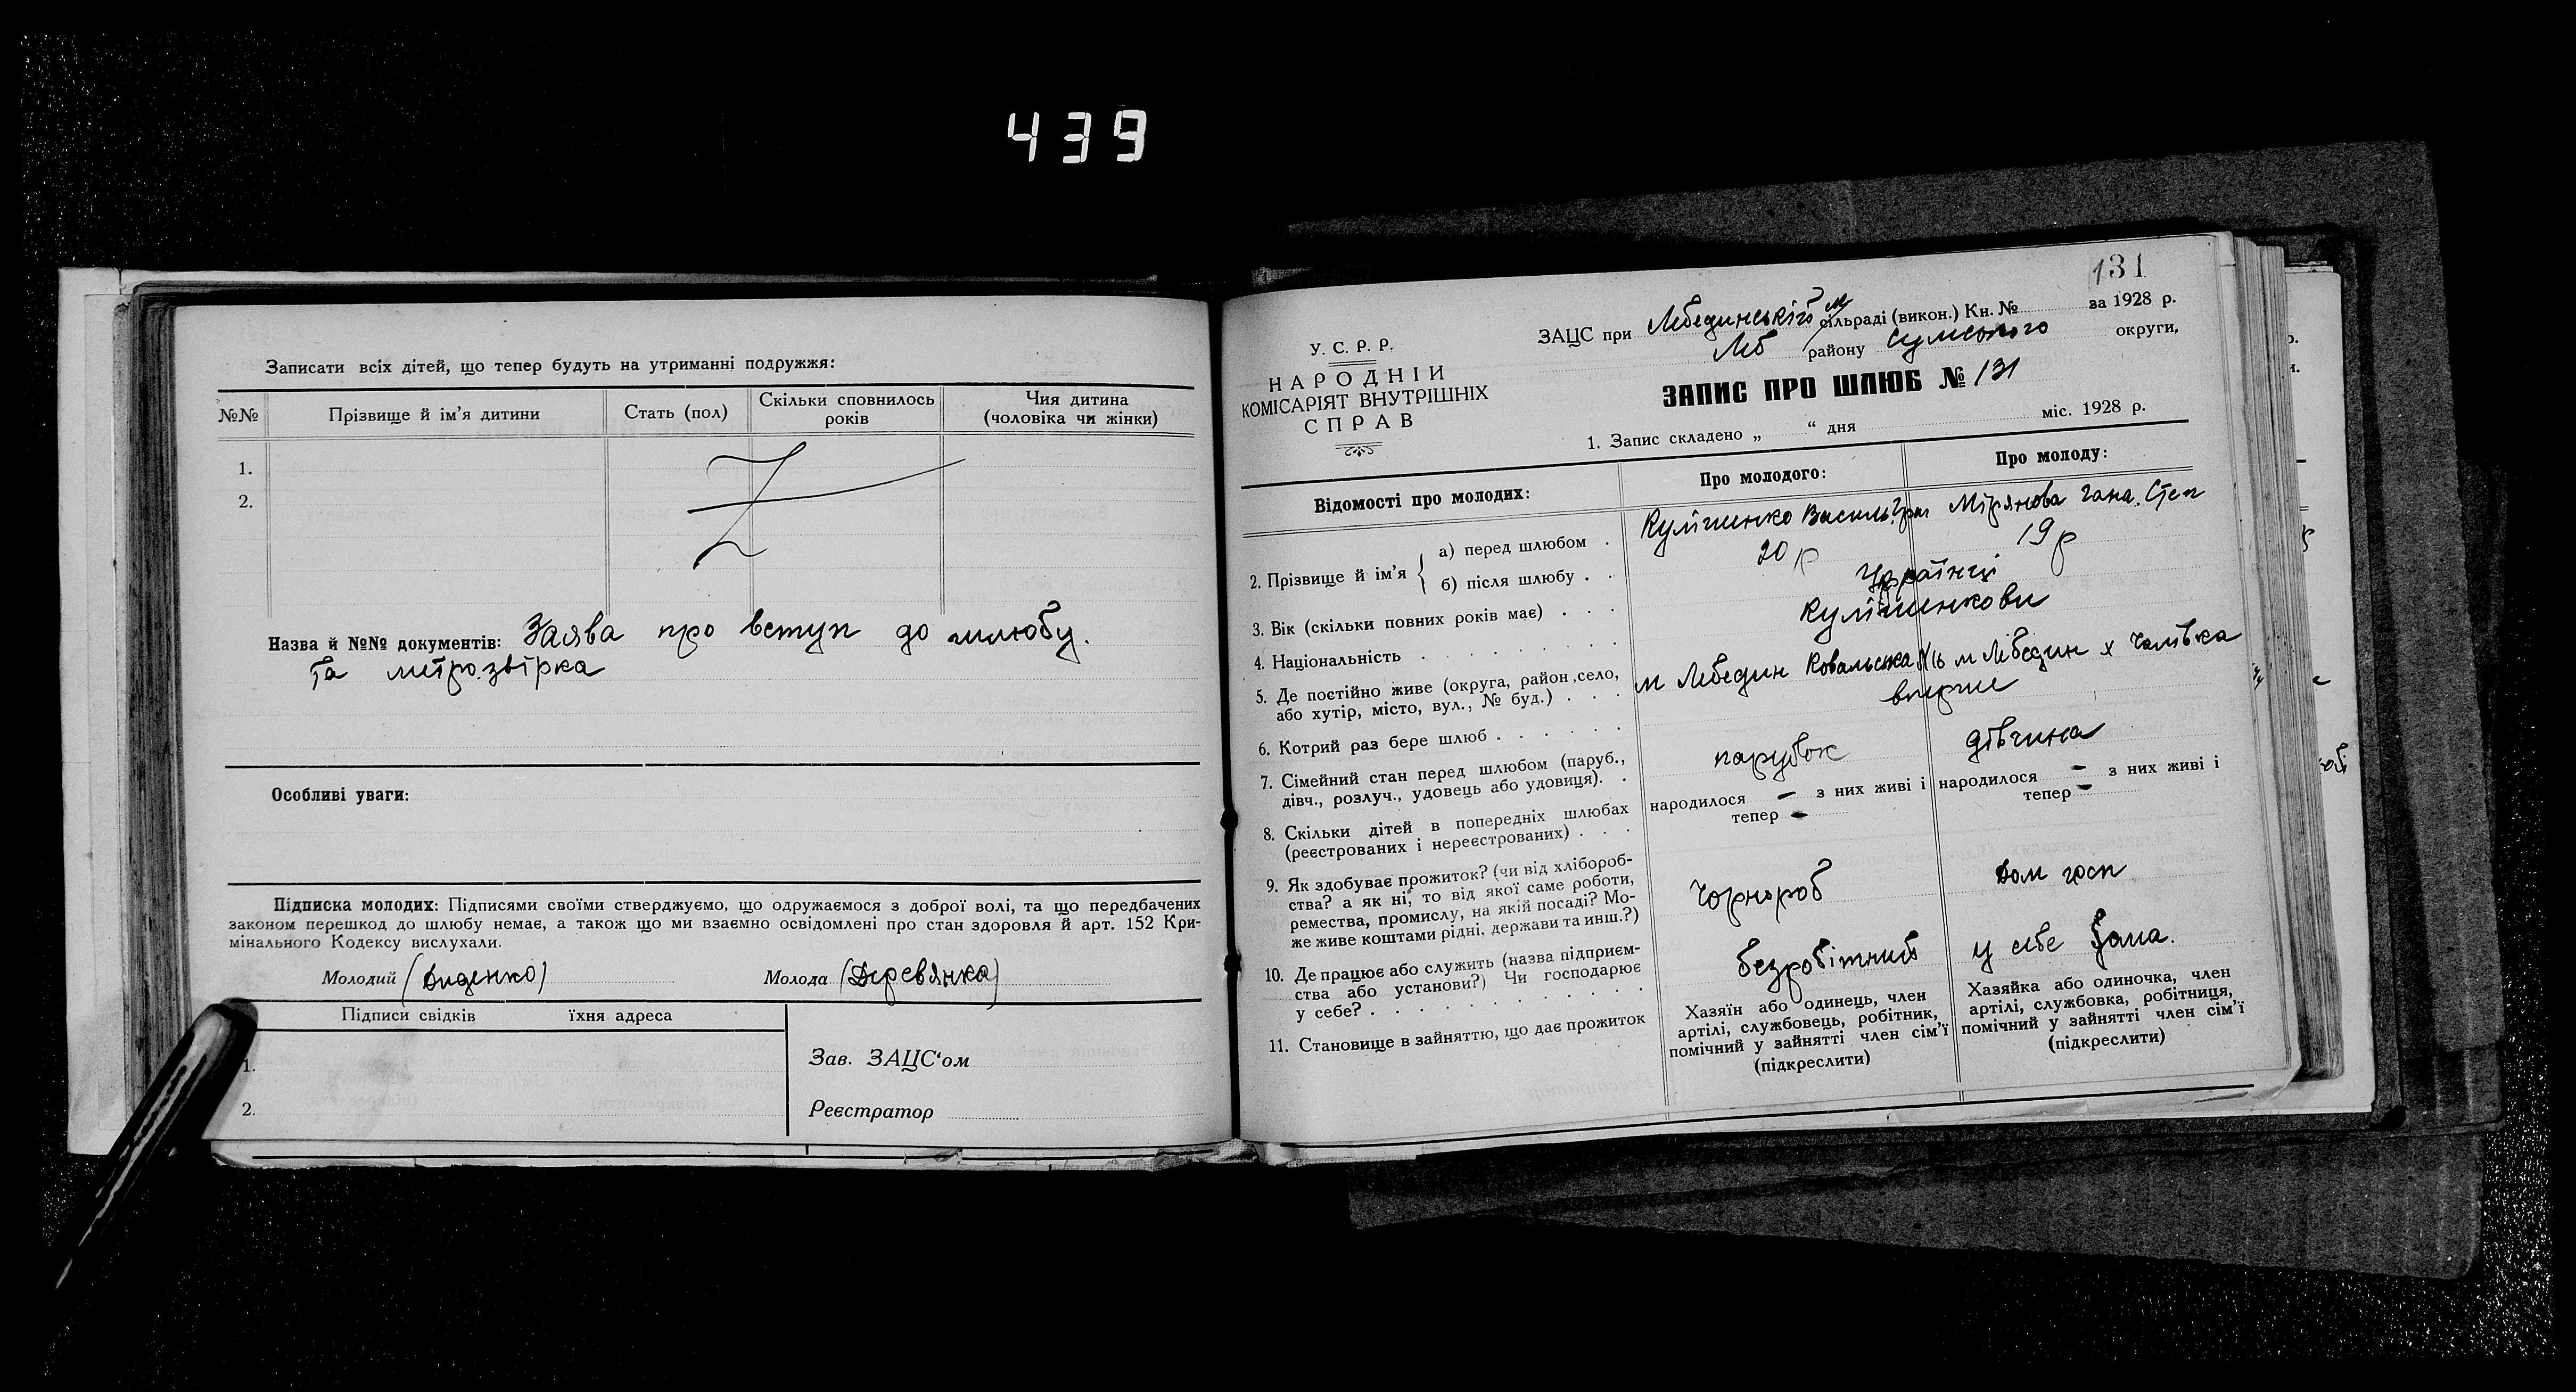 439
Записати всіх дітей, що тепер будуть на утриманні подружжя:
№№ Прізвище й ім'я дитини Стать (пол) Скільки сповнилось років Чия дитина (чоловіка чи жінки)
1.
2.
Назва й №№ документів: Заява про вступ до шлюбу.
та метрозвірка
Особливі уваги:
Підписка молодих: Підписями своїми стверджуємо, що одружаємося з доброї волі, та що передбачених
законом перешкод до шлюбу немає, а також що ми взаємно освідомлені про стан здоров'я й арт. 152 Кри-
мінального Кодексу вислухали.
Молодий (Диденко) Молода (Деревянка)
Підписи свідків їхня адреса
1.
2.
Зав. ЗАЦС'ом
Реєстратор
131
У. С. Р. Р.
НАРОДНІЙ
КОМІСАРІЯТ ВНУТРІШНІХ
СПРАВ
ЗАЦС при Лебединській сільраді (викон.) Кн. № за 1928 р.
Леб району Сумського округи.
ЗАПИС ПРО ШЛЮБ № 131
1. Запис складено „ “ дня міс. 1928 р.
Відомості про молодих: Про молодого: Про молоду:
2. Прізвище й ім'я
а) перед шлюбом . Василь Мірянова Гана Степ
б) після шлюбу . .
20 р 19 р
3. Вік (скільки повних років має) . . .
Українці
4. Національність
5. Де постійно живе (округа, район, село,
або хутір, місто, вул., № буд.) . . .
м Лебедин Ковальська 16 м Лебедин х
вперше
6. Котрий раз бере шлюб . . . . . .
7. Сімейний стан перед шлюбом (паруб.,
дівч., розлуч., удовець або удовиця). .
парубок дівчина
8. Скільки дітей в попередніх шлюбах
(реєстрованих і нереєстрованих) . . .
народилося – з них живі і
тепер –
народилося – з них живі і
тепер –
9. Як здобуває прожиток? (чи від хлібороб-
ства? а як ні, то від якої саме роботи,
ремества, промислу, на якій посаді? Мо-
же живе коштами рідні, держави та инш.?)
Чорнороб Дом госп
10. Де працює або служить (назва підприєм-
ства або установи?) Чи господарює
у себе? . . . . . . . . . .
безробітний у себе дома.
11. Становище в зайняттю, що дає прожиток
Хазяїн або одинець, член
артілі, службовець, робітник,
помічний у зайнятті член сім'ї
(підкреслити)
Хазяйка або одиночка, член
артілі, службовка, робітниця,
помічний у зайнятті член сім'ї
(підкреслити)